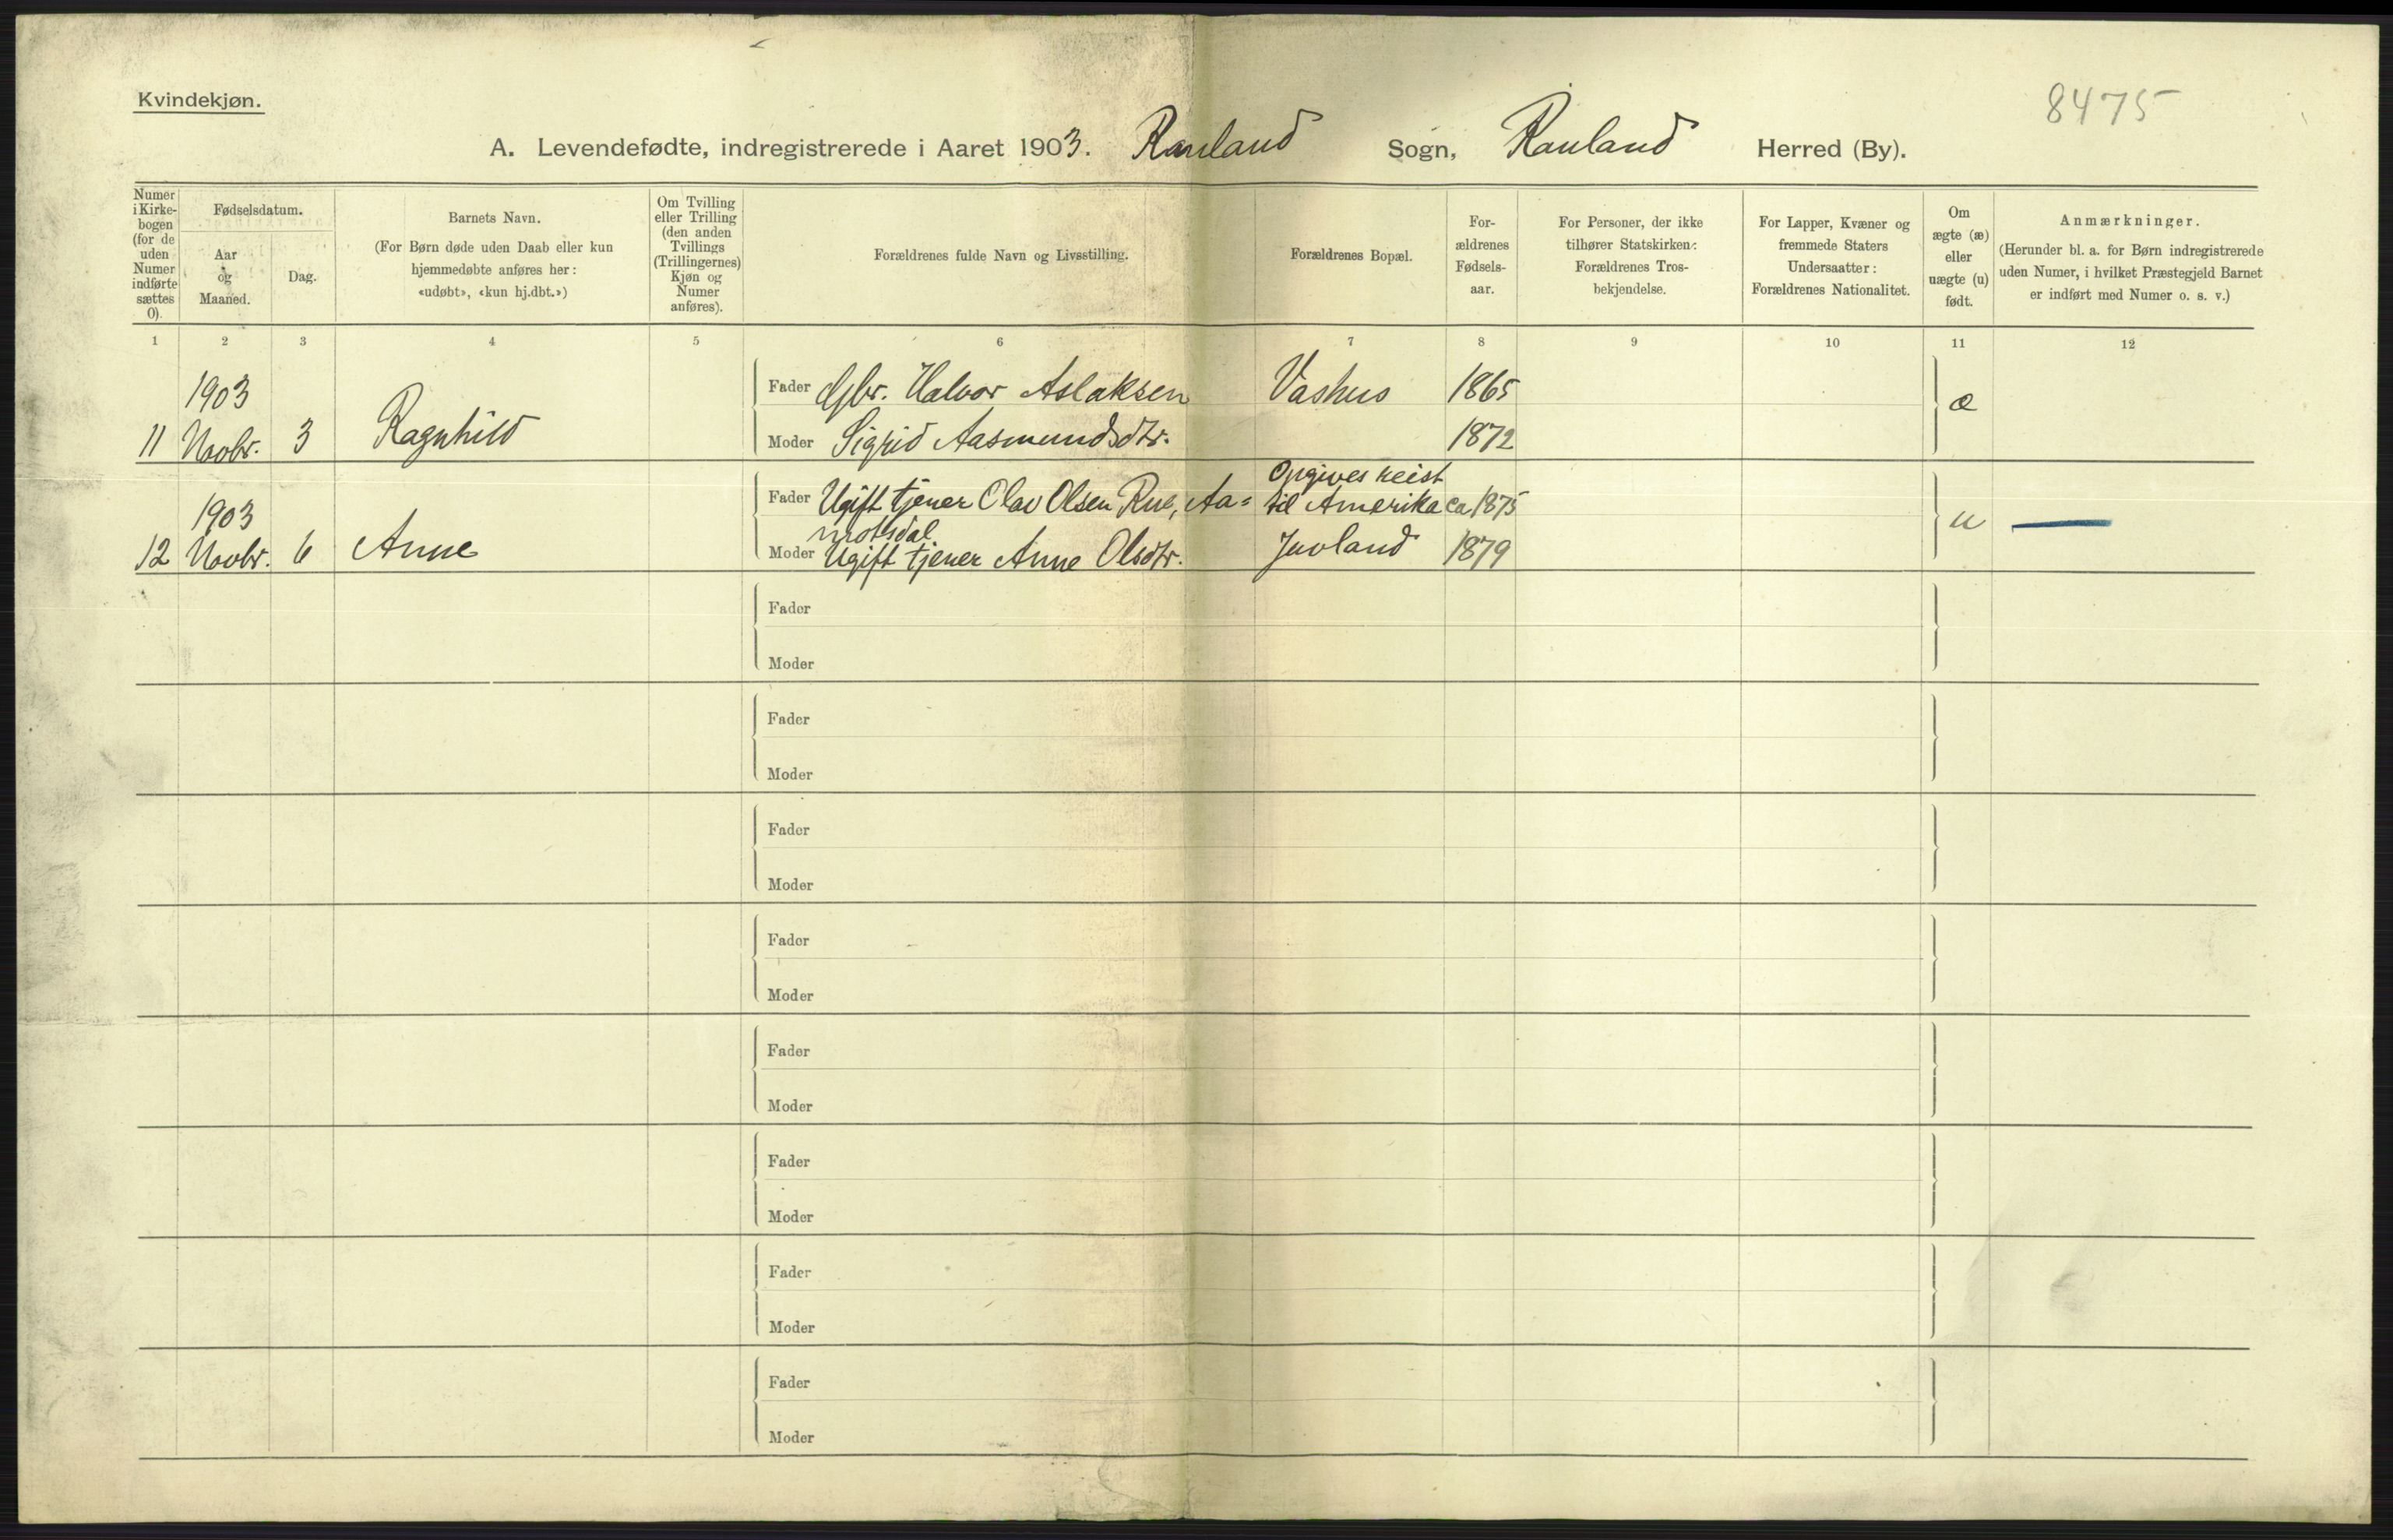 Kvindekjøn.
8475
A. Levendefødte, indregistrerede i Aaret 1903. Rauland Sogn, Rauland Herred (By).
Numer
i Kirke-
bogen
(for de
uden
Numer
indførte
sættes
0).
Fødselsdatum.
Aar
og
Maaned.
Dag.
Barnets Navn.
(For Børn døde uden Daab eller kun
hjemmedøbte anføres her:
«udøbt», «kun hj.dbt.»)
Om Tvilling
eller Trilling
(den anden
Tvillings
(Trillingernes)
Kjøn og
Numer
anføres).
Forældrenes fulde Navn og Livsstilling.
Forældrenes Bopæl.
For-
ældrenes
Fødsels-
aar.
For Personer, der ikke
tilhører Statskirken:
Forældrenes Tros-
bekjendelse.
For Lapper, Kvæner og
fremmede Staters
Undersaatter:
Forældrenes Nationalitet.
Om
ægte (æ)
eller
uægte (u)
født.
Anmærkninger.
(Herunder bl. a. for Børn indregistrerede
uden Numer, i hvilket Præstegjeld Barnet
er indført med Numer o. s. v.)
1 2 3 4 5 6 7 8 9 10 11 12
1903
11 Novbr. 3 Ragnhild
Fader Gbr. Halvor Aslaksen Vashus 1865
æ
Moder Sigrid Aasmundsdtr. 1872
1903
12 Novbr. 6 Anne
Opgives reist
Fader Ugift tjener Olav Olsen Rue, Aa= til Amerika ca 1875
motsdal
u
Moder Ugift tjener Anne Olsdtr. Juvland 1879
Fader
Moder
Fader
Moder
Fader
Moder
Fader
Moder
Fader
Moder
Fader
Moder
Fader
Moder
Fader
Moder